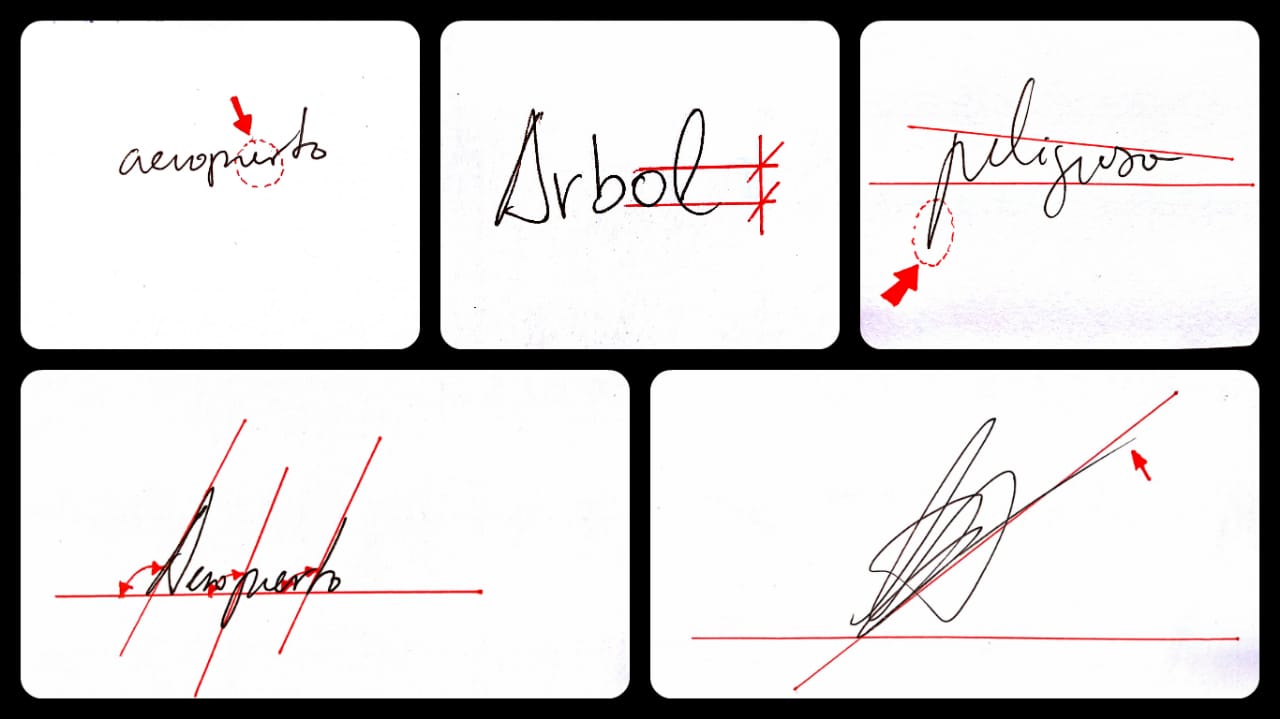 aeropuerto
Arbol
peligroso
Aeropuerto